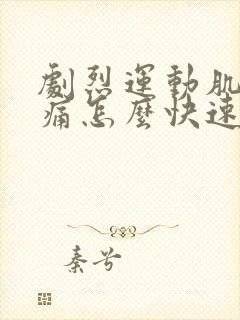 劇烈運動肌
痛怎麼快速
秦兮